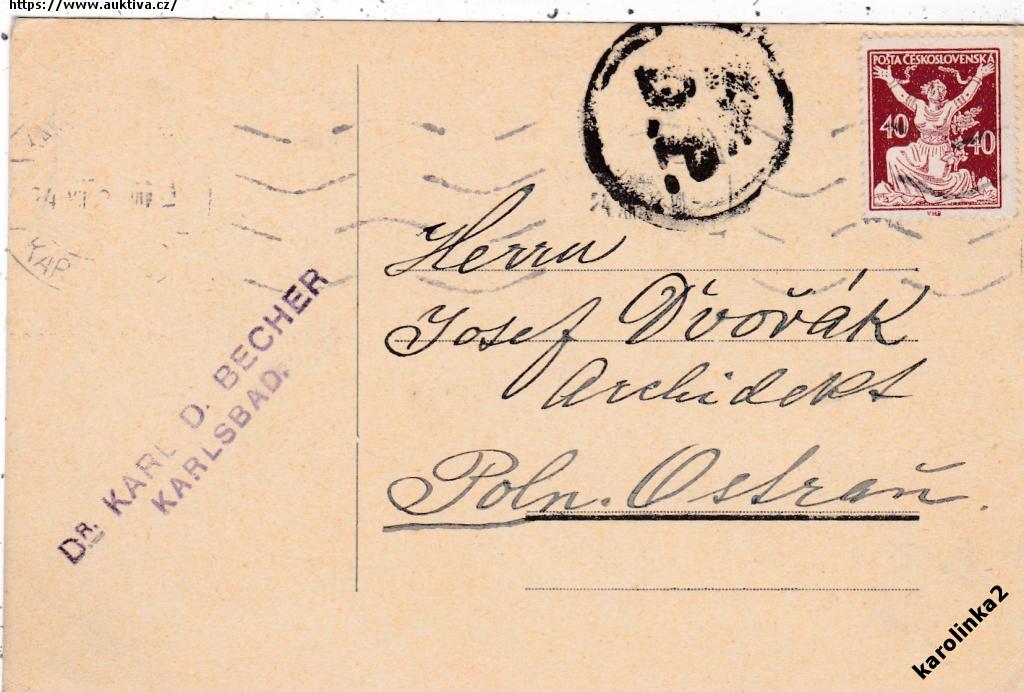 https://www.auktiva.cz/
POŠTA ČESKOSLOVENSKÁ
40 40
VHB
KAR
Herrn
Josef Dvořák
Archidekt
Poln. Ostrau.
DR. KARL D. BECHER
KARLSBAD.
karolinka2